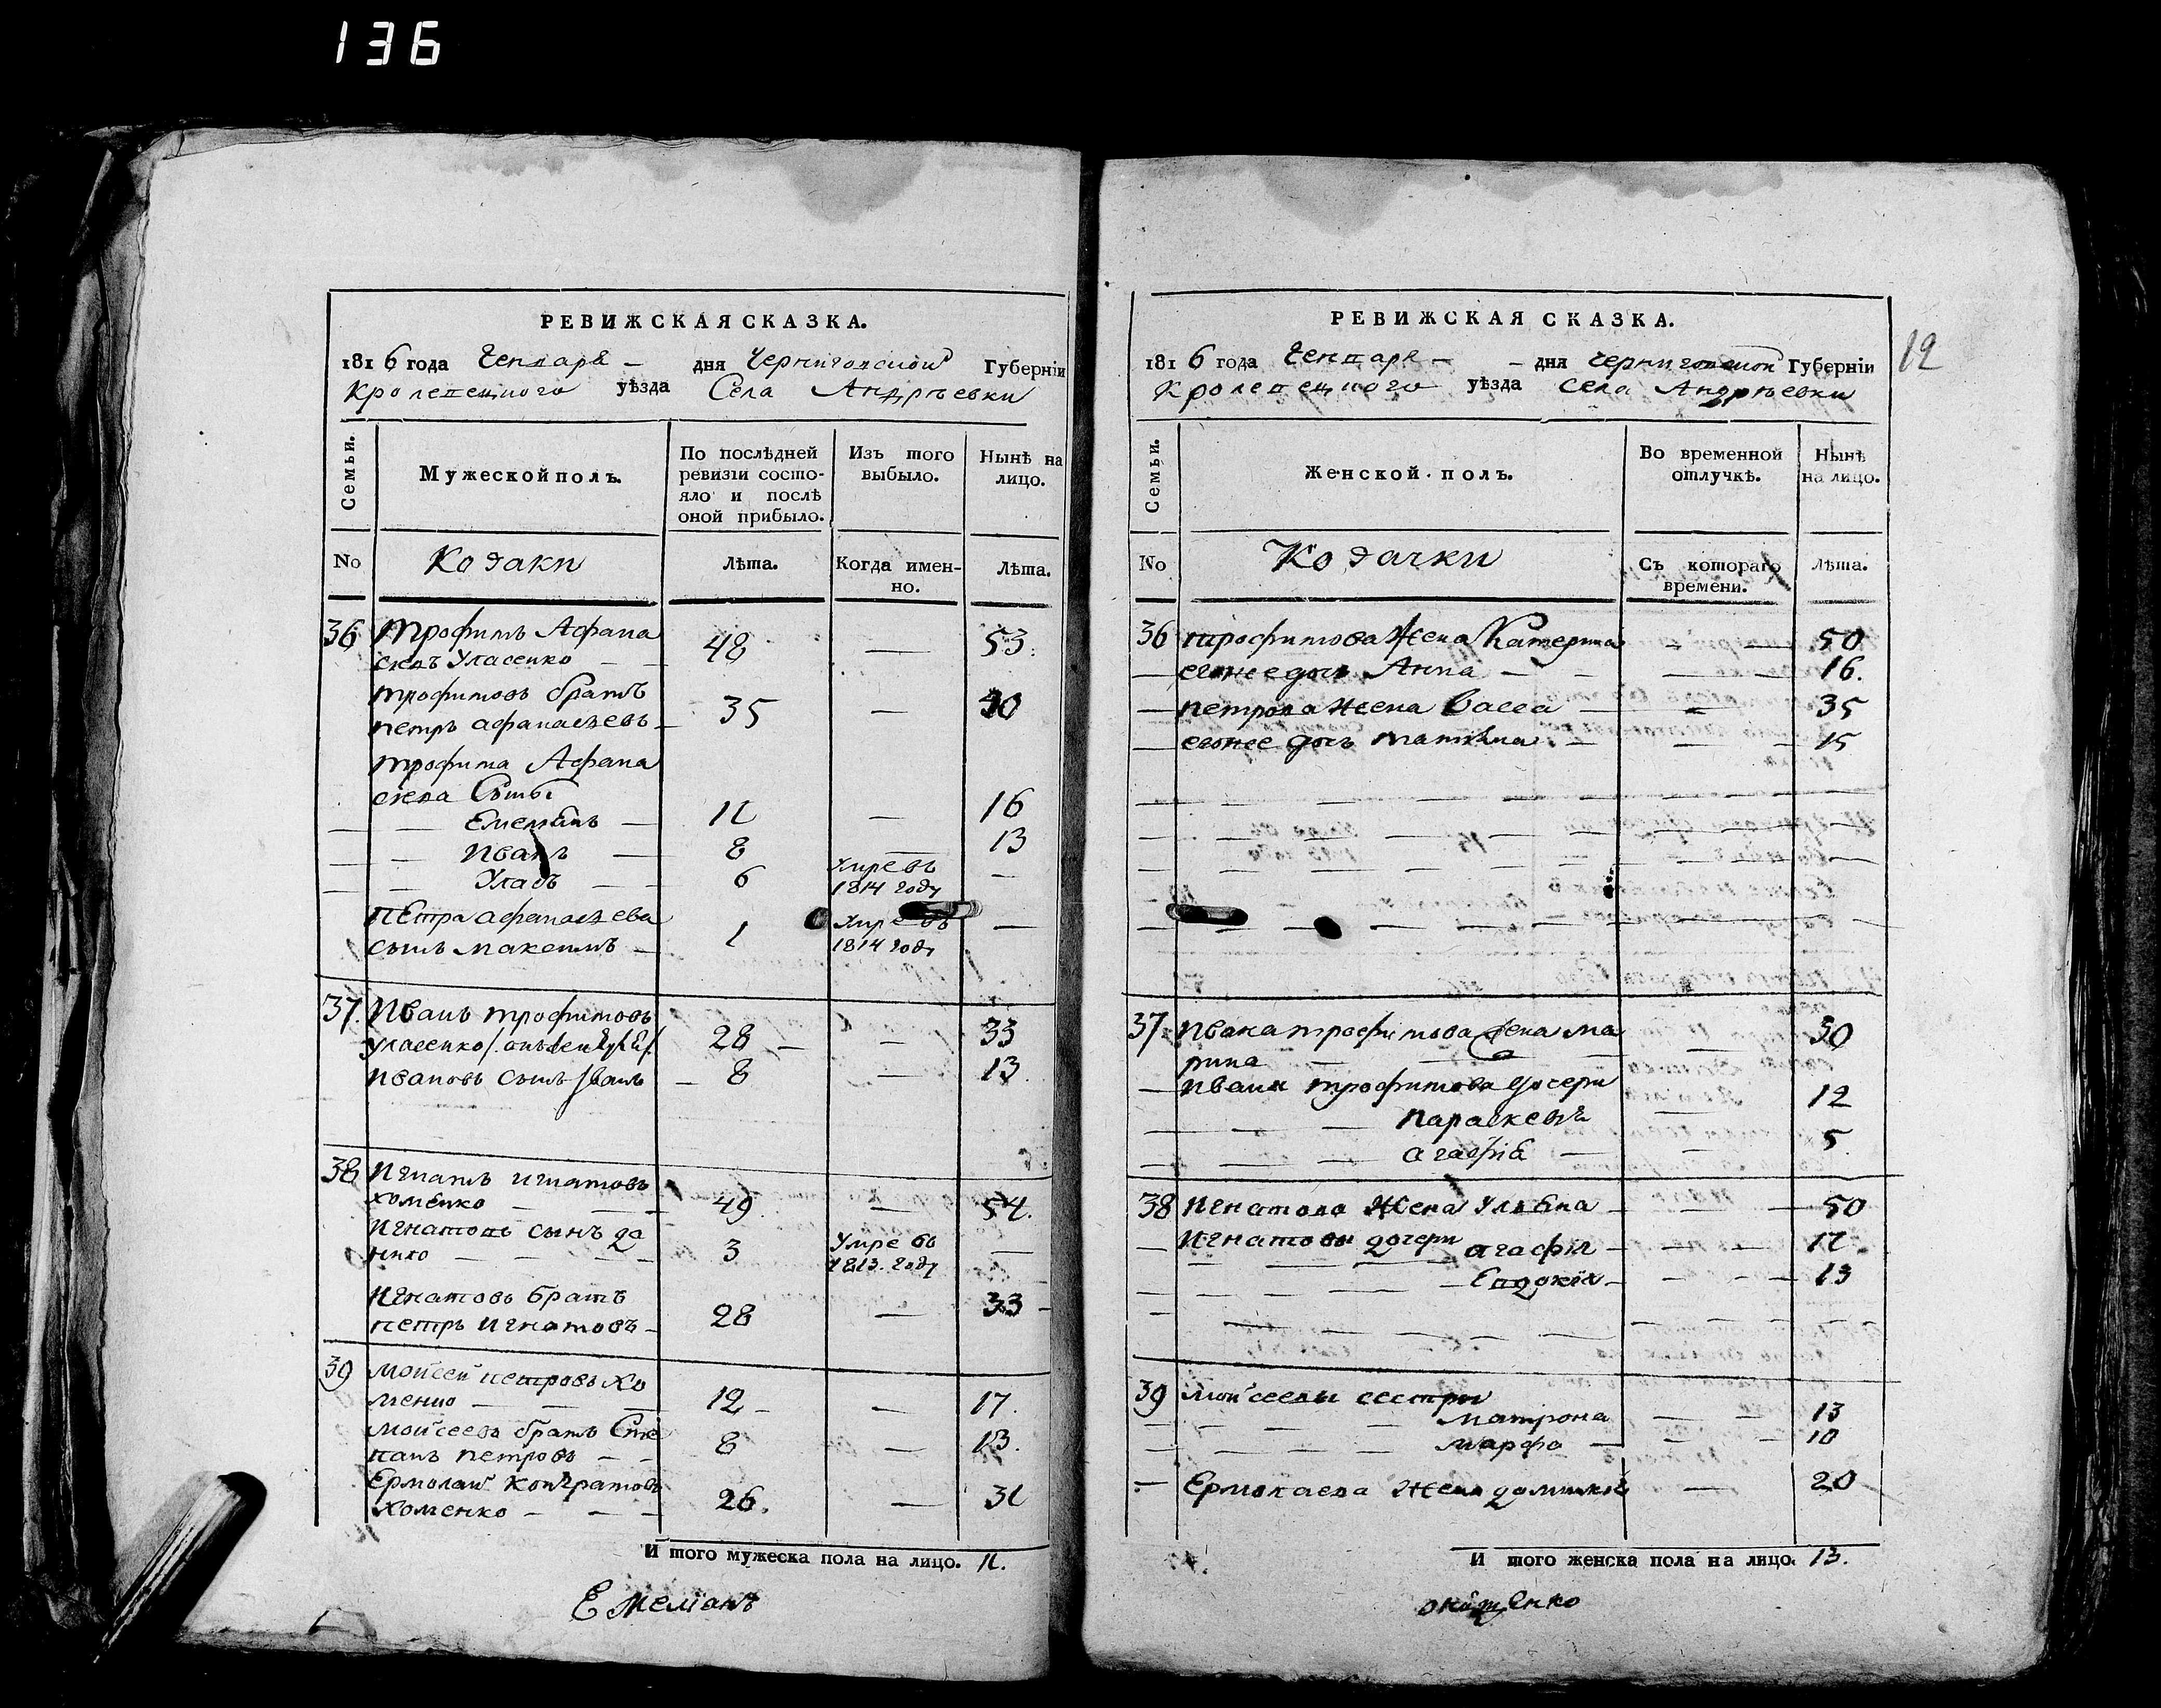 136
РЕВИЖСКАЯ СКАЗКА.
1816 года Генваря дня Черниговской Губерніи
Кролевецкого уѣзда Села Андрѣевки
Семьи.
Мужеской полъ.
По послѣдней ревизіи состо-
яло и послѣ
оной прибыло.
Изъ того
выбыло.
Нынѣ на
лицо.
No
Козаки
Лѣта.
Когда имен-
но.
Лѣта.
36 Трофимъ Афана
сіевъ Уласенко — 48 — 53.
Трофимовъ братъ
Петръ Афанасьевъ — 35 — 40
Трофима Афана
сіева Сыны
Емельянъ — 11 — 16
Иванъ — 8 — 13
Уласъ — 6 Умре въ
1814 году —
Петра Афанасьева
сынъ Максимъ — 1 Умре въ
1814 году —
37 Иванъ Трофимовъ
Уласенко 28 — 33
Ивановъ сынъ Иванъ — 8 — 13.
38 Игнатъ Игнатовъ
Хоменко — 49 — 54.
Игнатовъ сынъ Да
нило — 3 Умре въ
1813. году —
Игнатовъ братъ
Петръ Игнатовъ — 28 — 33
39 Мойсей Петровъ Хо
менко — 12 — 17.
Мойсеевъ братъ Сте
панъ Петровъ — 8 — 13.
Ермолай Кондратовъ
Хоменко — 26. — 31
И того мужеска пола на лицо. 11.
Емеліанъ
12
РЕВИЖСКАЯ СКАЗКА.
1816 года Генваря — дня Черниговской Губерніи
Кролевецкого уѣзда Села Андрѣевки
Семьи.
Женской полъ.
Во временной
отлучкѣ.
Нынѣ
на лицо.
No
Козачки
Съ котораго
времени.
Лѣта.
36 Трофимова Жена Катерина — 50
егоже дочь Анна — 16.
Петрова жена Васса — 35
егоже дочь Татіяна — 15
37 Ивана Трофимова Жена Ма
рина — 30
Ивана Трофимова дочери
Параскевія — 12
Агафія — 5
38 Игнатова Жена Уліяна — 50
Игнатовы дочери Агафія — 17
Евдокія — 13
39 Мойсеевы сестры
Матрона — 13
Марфа — 10
Ермолаева Жена Домникія — 20
И того женска пола на лицо. 13.
Онищенко